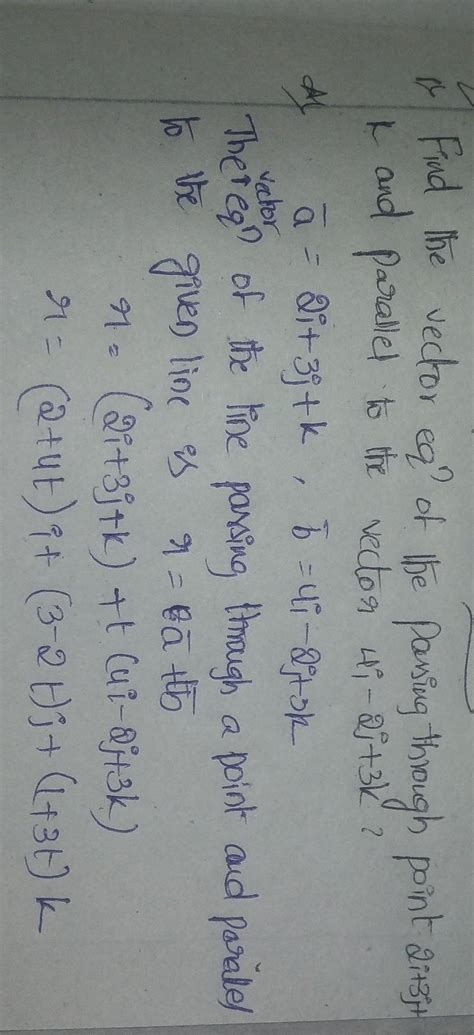 1) Find the vector eqⁿ of the passing through point 2i+3j+
k and parallel to the vector 4i-2j+3k?
A) ā = 2i+3j+k, b̄ = 4i-2j+3k
The r vector eqⁿ of the line passing through a point and parallel
to the given line is r = ā+tb̄
r = (2i+3j+k) + t(4i-2j+3k)
r = (2+4t)i + (3-2t)j + (1+3t)k